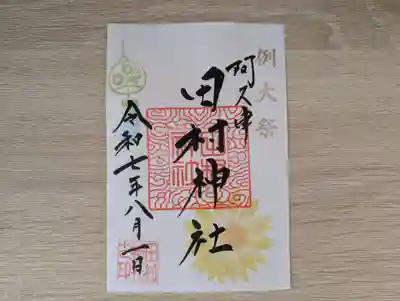 例大祭
阿久津
田村神社
令和七年八月一日